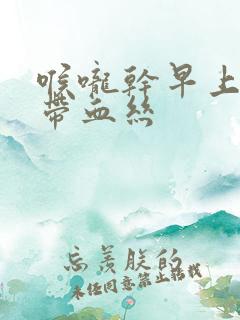 喉嚨幹早上
帶血絲
忘羨朕的
未经同意禁止转载